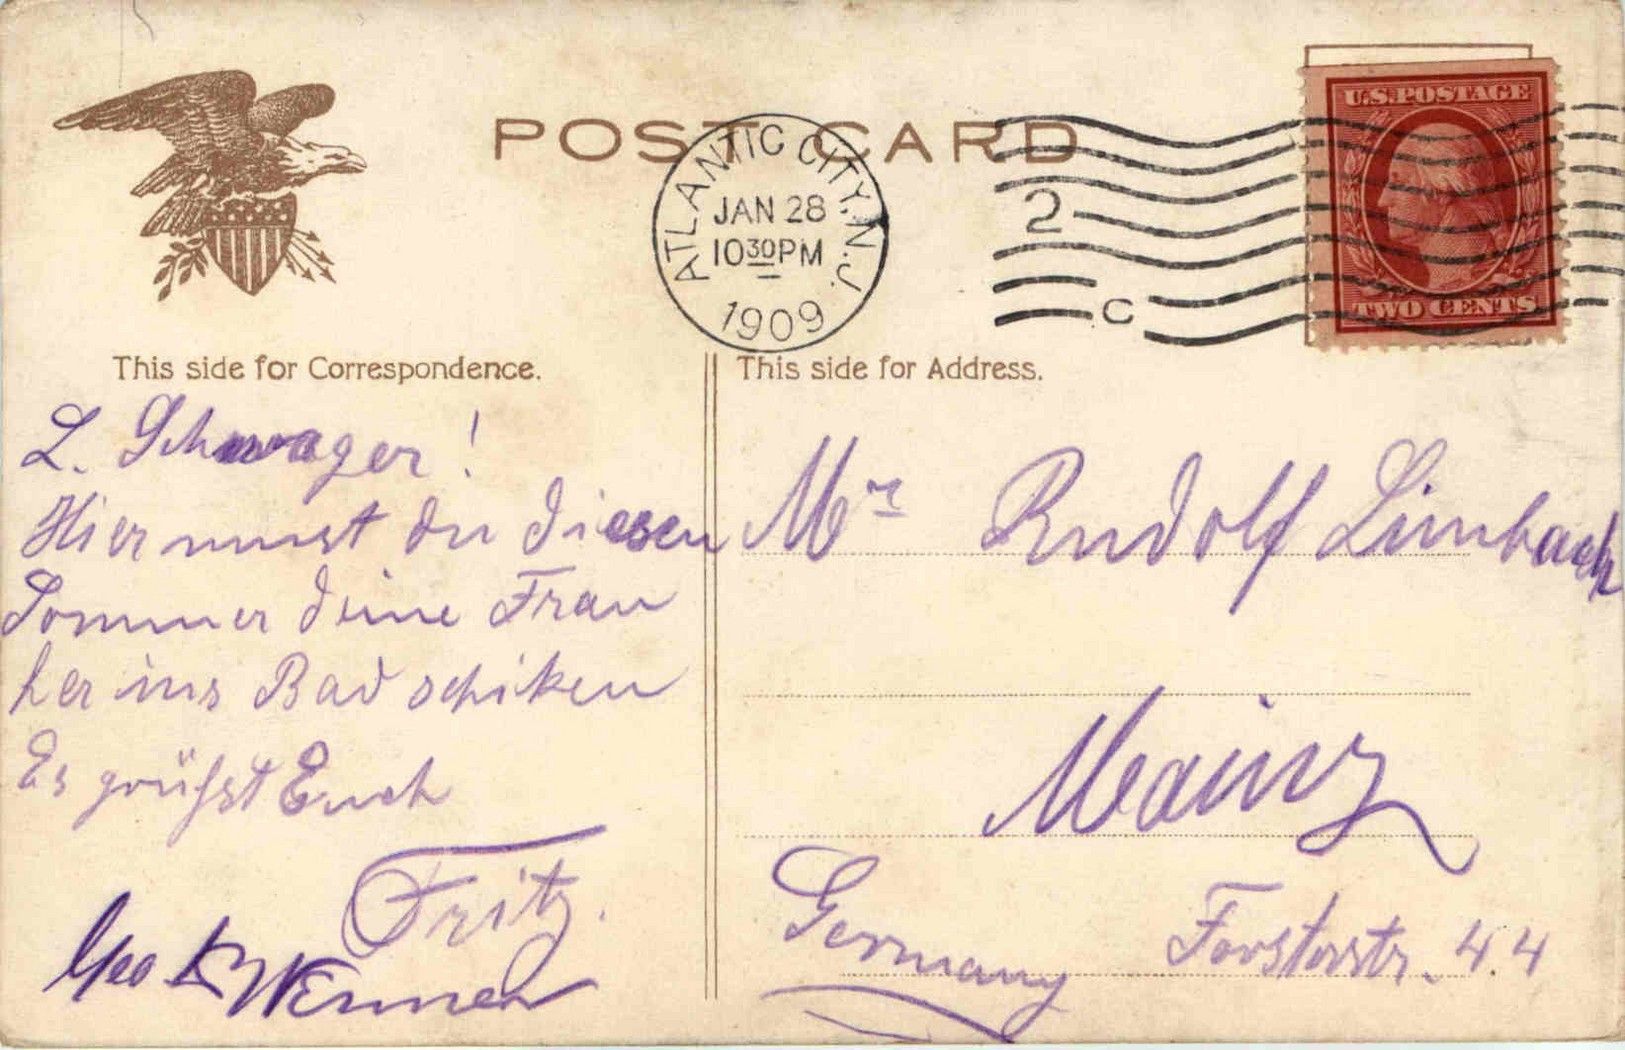 POST CARD
ATLANTIC CITY, N.J.
JAN 28
10 30 PM
1909
2
C
U.S. POSTAGE
TWO CENTS
This side for Correspondence.
L. Schwager!
Hier musst du diesen
Sommer deine Frau
her ins Bad schiken
Es grüßt Euch
Fritz.
Geo
This side for Address.
Mr Rudolf Limbach
Mainz
Germany Forsterstr. 44